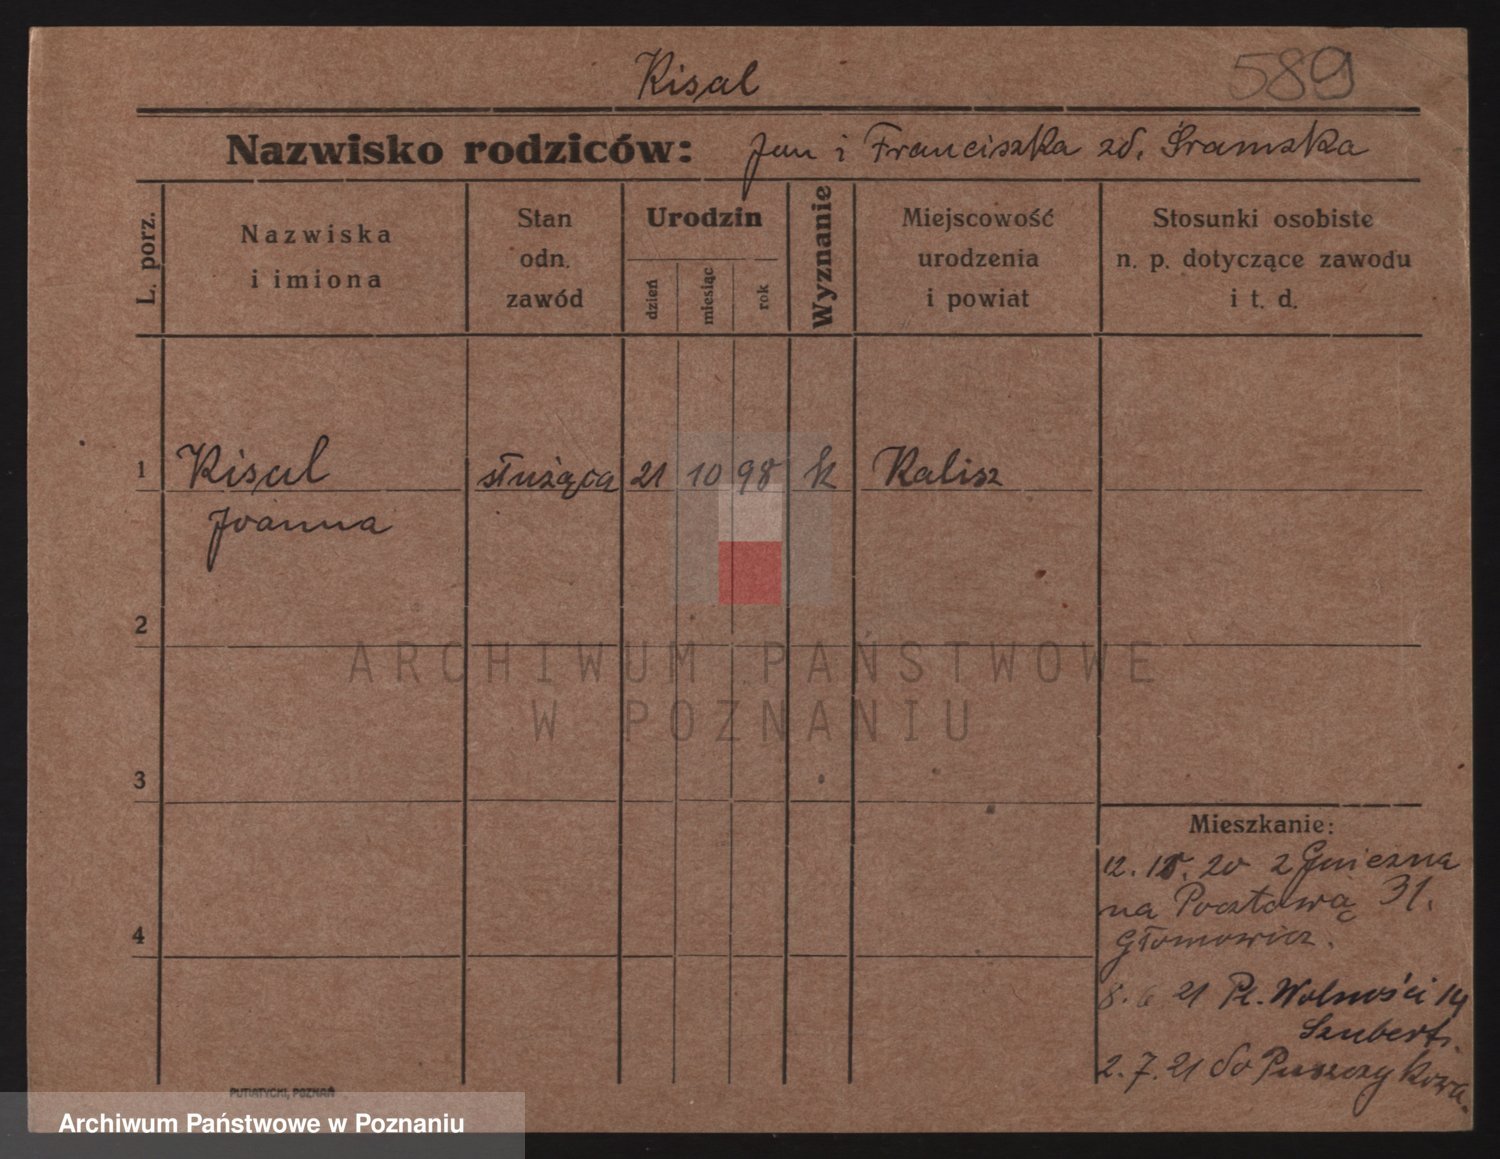 Kisal
589
Nazwisko rodziców: Jan i Franciszka zd. Sramska
L. porz.
Nazwiska
i imiona
Stan
odn.
zawód
Urodzin
dzień
miesiąc
rok
Wyznanie
Miejscowość
urodzenia
i powiat
Stosunki osobiste
n. p. dotyczące zawodu
i t. d.
1 Kisal służąca 21 10 98 k Kalisz
Joanna
2
3
4
Mieszkanie:
12. 20 z Gniezna
na Pocztową 31.
Głomowicz.
8. 6 21 Pl. Wolności 14
Szubert.
2. 7. 21 do Puszczykowa.
PUTIATYCKI, POZNAŃ
ARCHIWUM PAŃSTWOWE
W POZNANIU
Archiwum Państwowe w Poznaniu